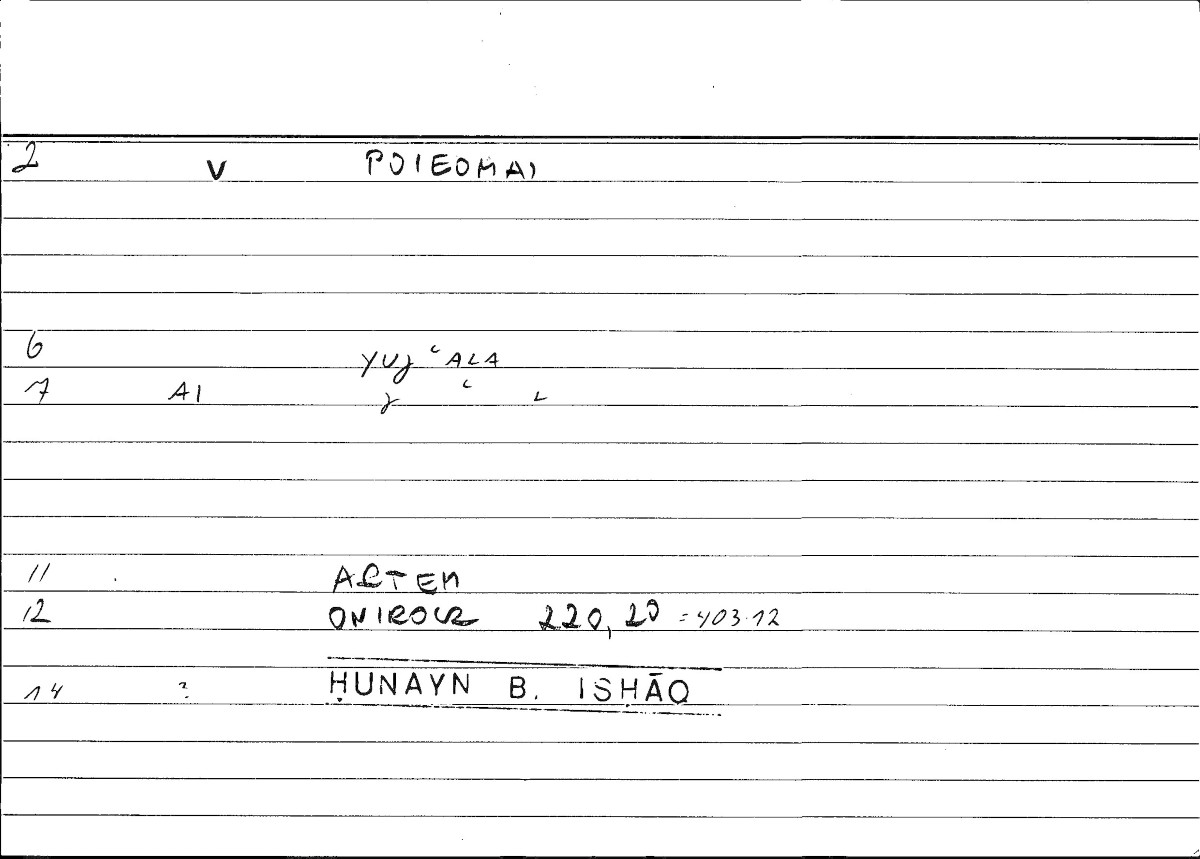 2 V POIEOMAI
6 YUJ ʿALA
7 AI J ʿ L
11 ARTEM
12 ONIROCR 220,20 = 403.12
14 ? ḤUNAYN B. ISḤĀQ